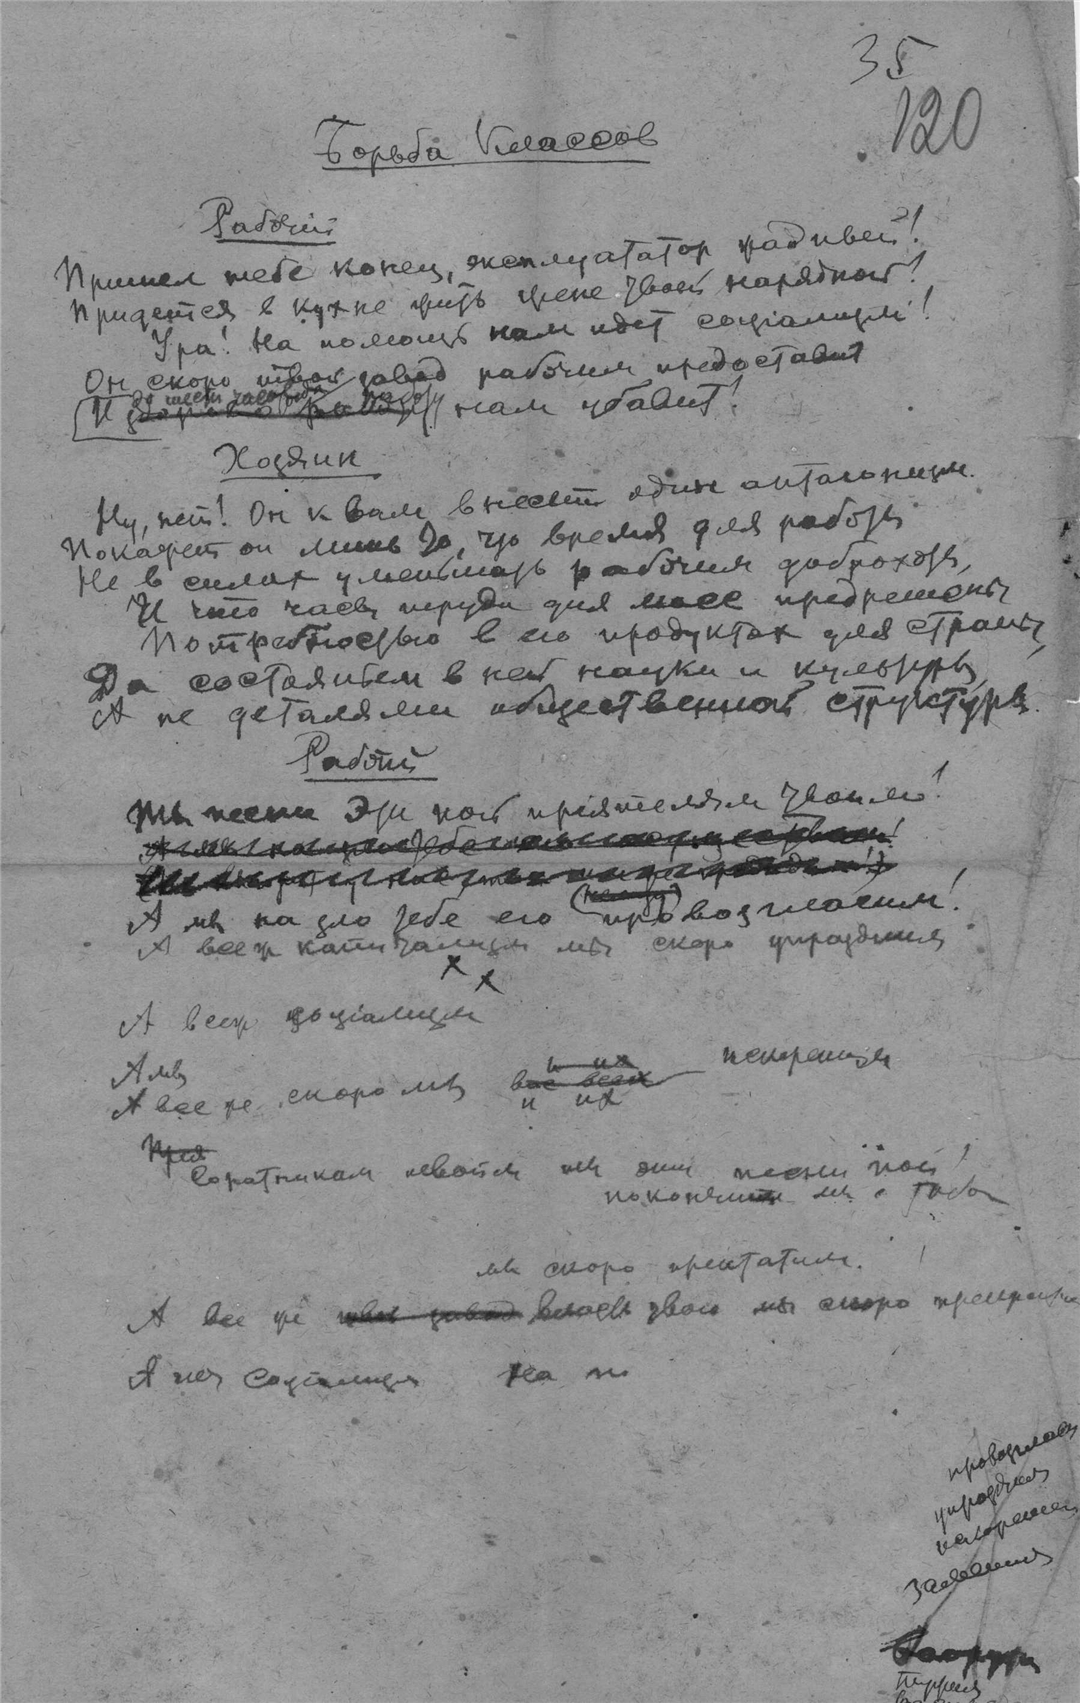 35
120
Борьба Классов
Рабочий
Пришел тебе конец, эксплуататор
Придется в кухне жить жене твоей нарядной!
Ура! На помощь нам идет социализм!
Он скоро твой завод рабочим предоставит
И до шести часов работу нам убавит!
Хозяин
Ну, нет! Он к вам внесет один антагонизм.
Покажет он лишь то, что время для работы
Не в силах уменьшать рабочим доброхоты,
И что часы труда для масс предрешены
Потребностью в его продуктах для страны,
Да состояньем в ней науки и культуры,
А не деталями общественной структуры.
Рабочий
Ты песни эти пой приятелям твоим!
А мы на зло тебе его провозгласим!
А всеж капитализм мы скоро упраздним
А всеж социализм
А мы
А все же скоро мы вас всех искореним
и их
и их
При
Соратникам твоим ты эти песни пой!
покончим мы с тобой
мы скоро прекратим.
А все же твой завод власть твою мы скоро прекратим
А мы социализм на
провозгласим
упраздним
искореним